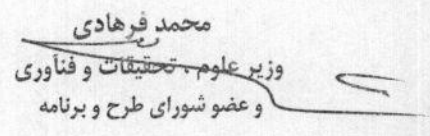 محمد فرهادی
وزیر علوم ، تحقیقات و فنآوری
و عضو شورای طرح و برنامه